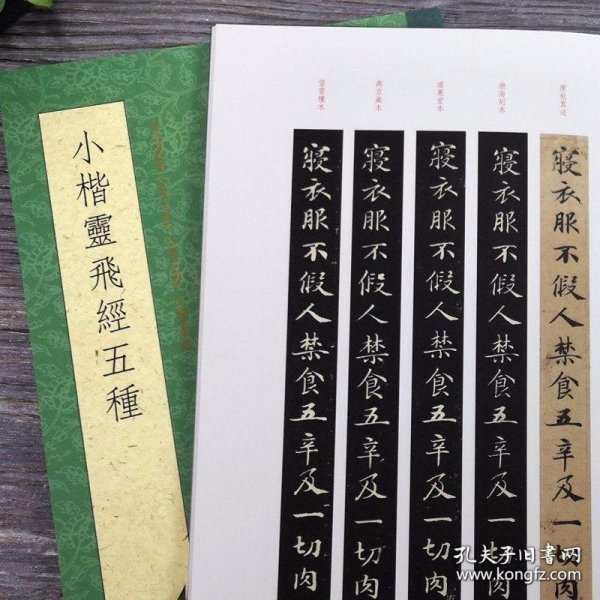 小楷靈飛經五種
原帖真迹
渤海刻本
滋蕙堂本
望雲樓本
寢衣服不假人禁食五辛及一切肉
寢衣服不假人禁食五辛及一切肉
寢衣服不假人禁食五辛及一切肉
寢衣服不假人禁食五辛及一切肉
寢衣服不假人禁食五辛及一切肉
孔夫子旧书网
www.kongfz.com